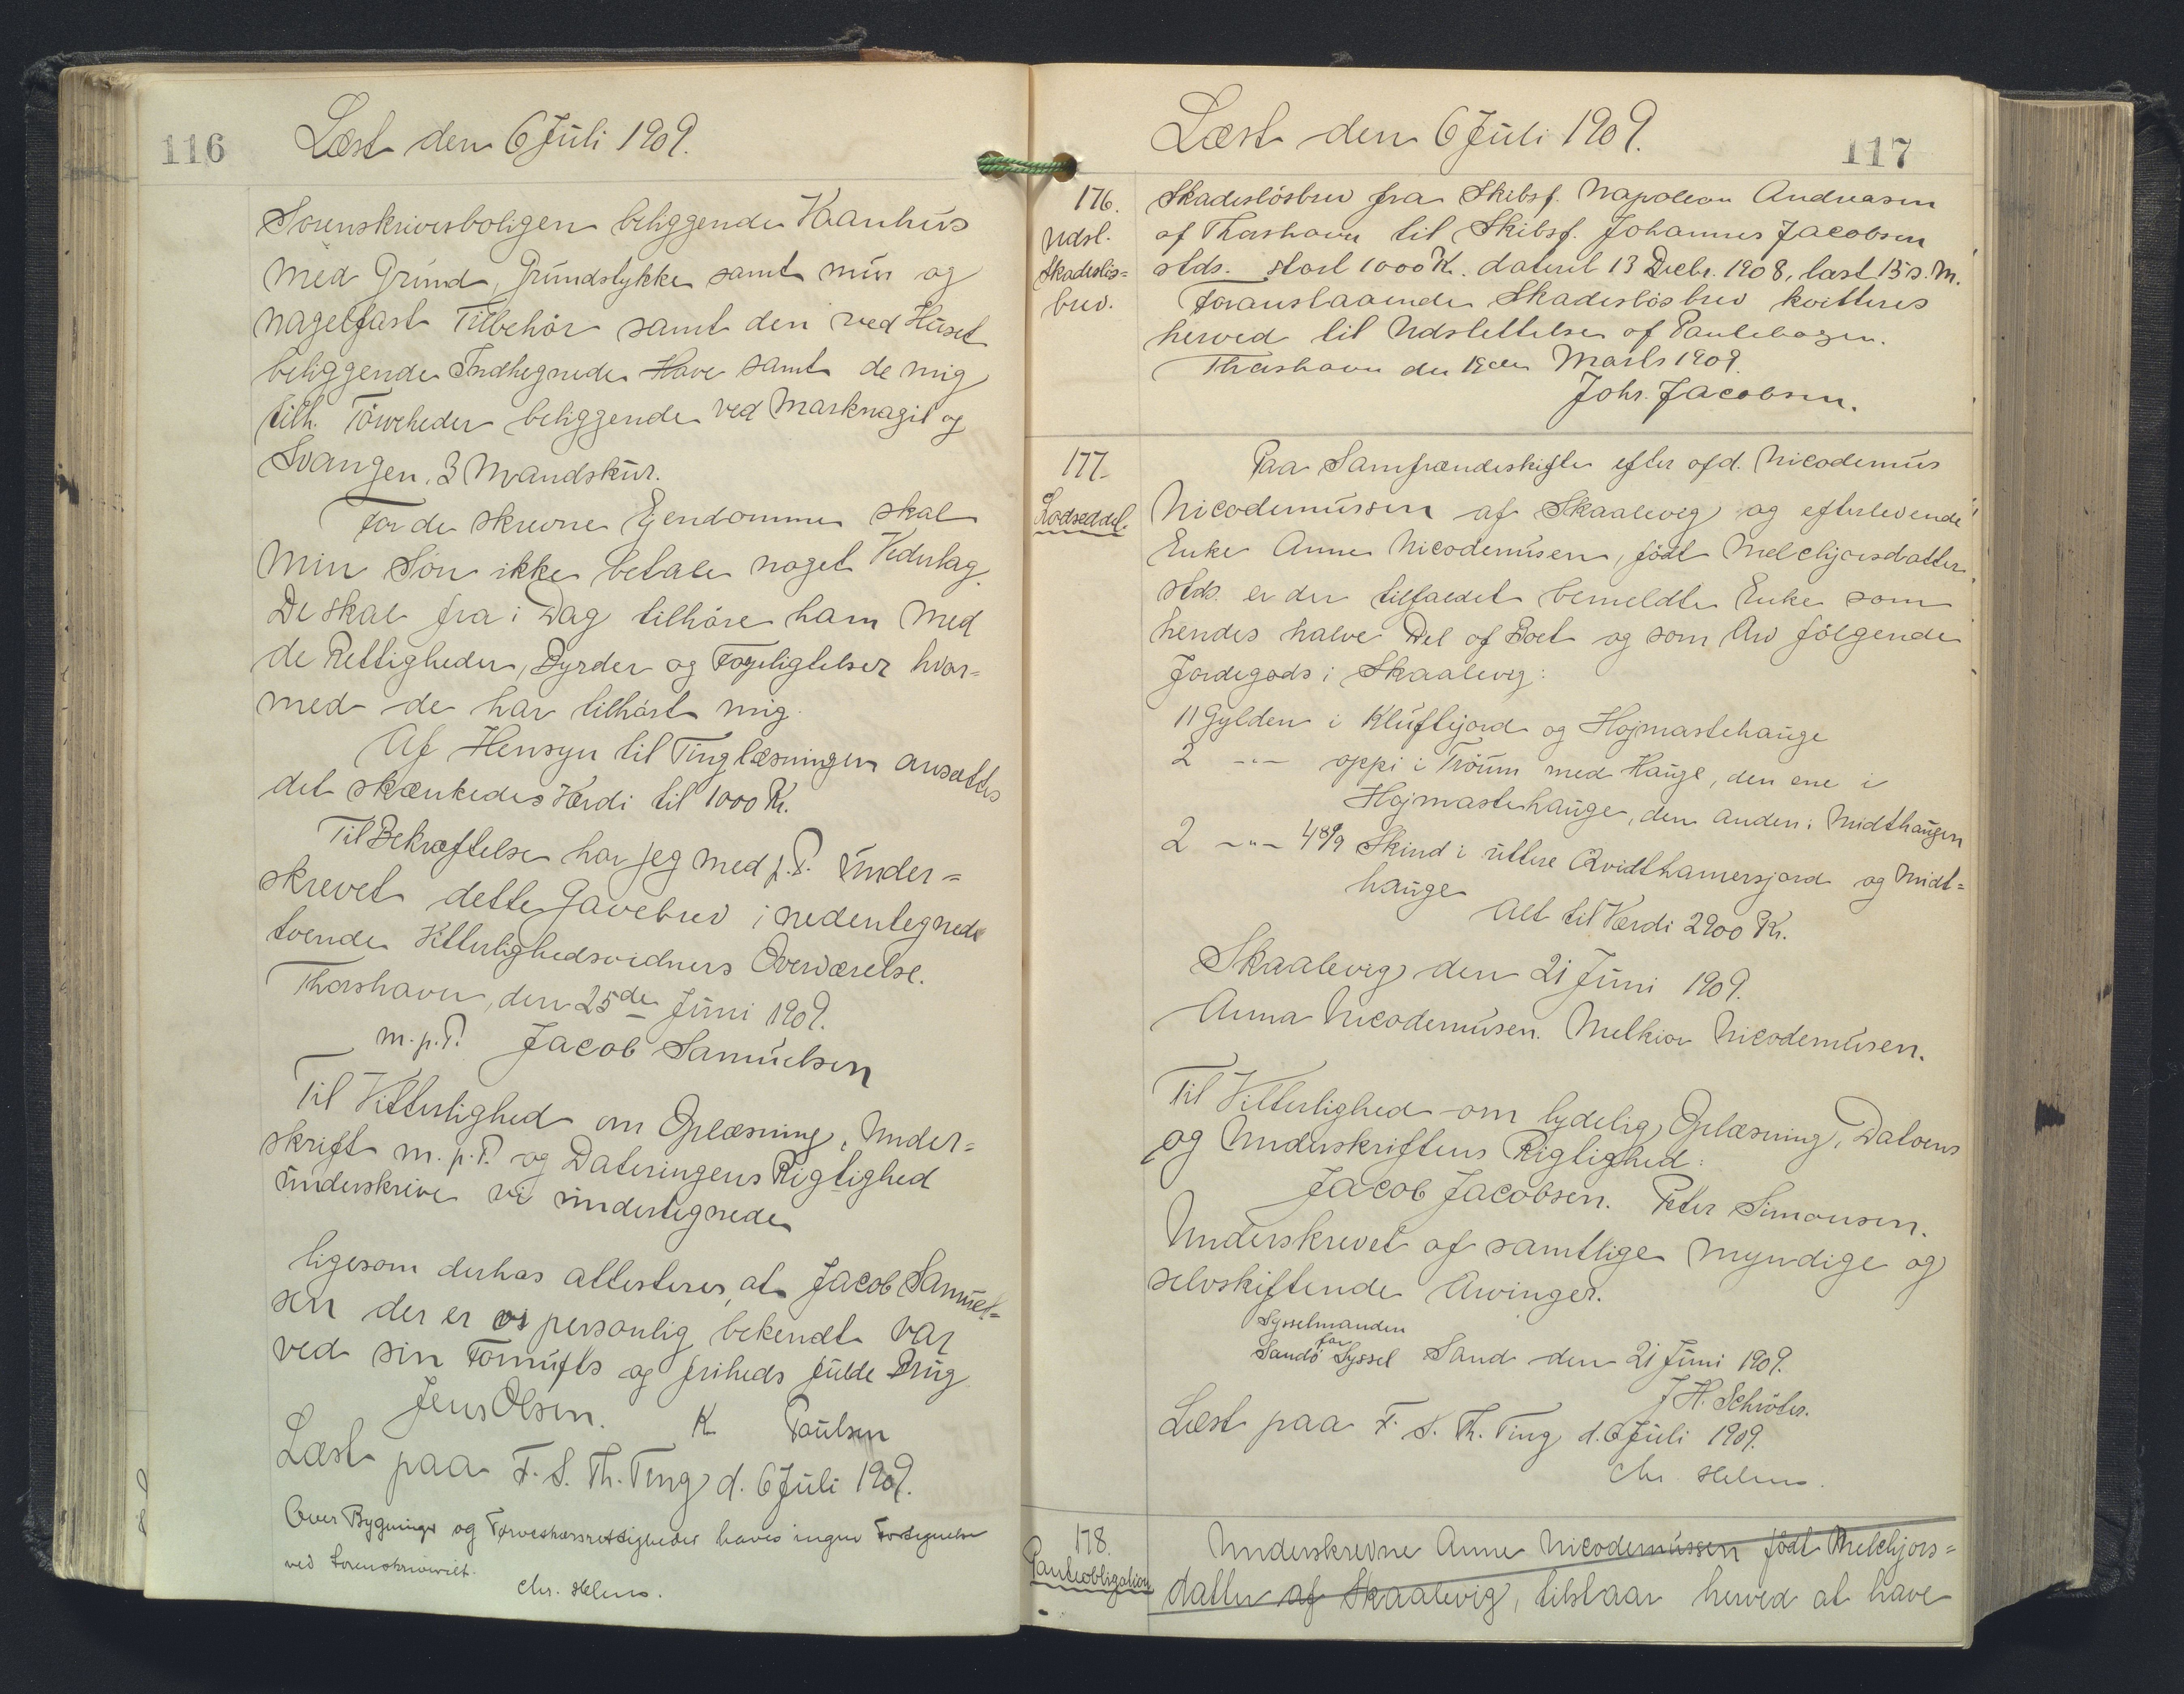 116
Læst den 6 Juli 1909.
Sorenskriverboligen beliggende Vaanhus
med Grund, Grundstykke samt mur og
nagelfast Tilbehör samt den ved Huset
beliggende Indhegnede Have samt de mig
tilh. Törveheder beliggende ved Marknagil og
Svangen, 3 Mandskur.
For de skrevne Ejendomme skal
min Sön ikke betale noget Vederlag.
De skal fra i Dag tilhöre ham med
de Rettigheder, Byrder og Forpligtelser hvor=
med de har tilhört mig.
Af Hensyn til Tinglæsningen ansættes
det skænkedes Værdi til 1000 Kr.
Til Bekræftelse har jeg med p. P. under=
skrevet dette Gavebrev i nedentegnede
tvende Vitterlighedsvidners Overværelse.
Thorshavn, den 25de Juni 1909.
m. p. P. Jacob Samuelsen
Til Vitterlighed om Oplæsning, Under=
skrift m. p. P. og Dateringens Rigtighed
underskrive vi undertegnede
ligesom derhos attesteres, at Jacob Samuel=
sen der er os personlig bekendt var
ved sin Fornufts og friheds fulde Brug
Jens Olsen. K Paulsen
Læst paa F. S. Th. Ting d. 6 Juli 1909.
Over Bygninger og Törveskærsrettigheder haves ingen Fortegnelse
ved Sorenskriveriet.
Chr. Helms.
Læst den 6 Juli 1909.
117
176.
Udsl.
Skadeslös=
brev.
Skadeslösbrev fra Skibsf. Napoleon Andreasen
af Thorshavn til Skibsf. Johannes Jacobsen
stds. stort 1000 Kr. dateret 13 Decbr. 1908, læst 15 s. M.
Foranstaaende Skadeslösbrev kvitteres
herved til Udslettelse af Pantebogen.
Thorshavn den 19den Marts 1909.
Johs. Jacobsen.
177.
Lodseddel.
Paa Samfrændeskifte efter afd. Nicodemus
Nicodemussen af Skaalevig og efterlevende
Enke Anne Nicodemusen, födt Melchjorsdatter
stds. er der tilfaldet bemeldte Enke som
hendes halve Del af Boet og som Arv fölgende
Jordegods i Skaalevig:
11 Gylden i Kluftejord og Hojmastehauge
2 -"- oppi i Tröum med Hauge, den ene i
Hojmastehauge, den anden i Midthaugen
2 -"- 4 8/9 Skind i uttere Qvidthamersjord og Midt=
hauge
Alt til Værdi 2900 Kr.
Skaalevig den 21 Juni 1909.
Anna Nicodemusen. Melkior Nicodemusen.
Til Vitterlighed om lydelig Oplæsning, Datoens
og Underskriftens Rigtighed:
Jacob Jacobsen. Peter Simonsen.
Underskrevet af samtlige myndige og
selvskiftende Arvinger.
Sysselmanden
for
Sandö Syssel Sand den 21 Juni 1909.
J H. Schröter.
Læst paa F. S. Th. Ting d. 6 Juli 1909.
Chr. Helms.
178.
Panteobligation
Underskrevne Anne Nicodemussen födt Melchjors=
datter af Skaalevig, tilstaar herved at have